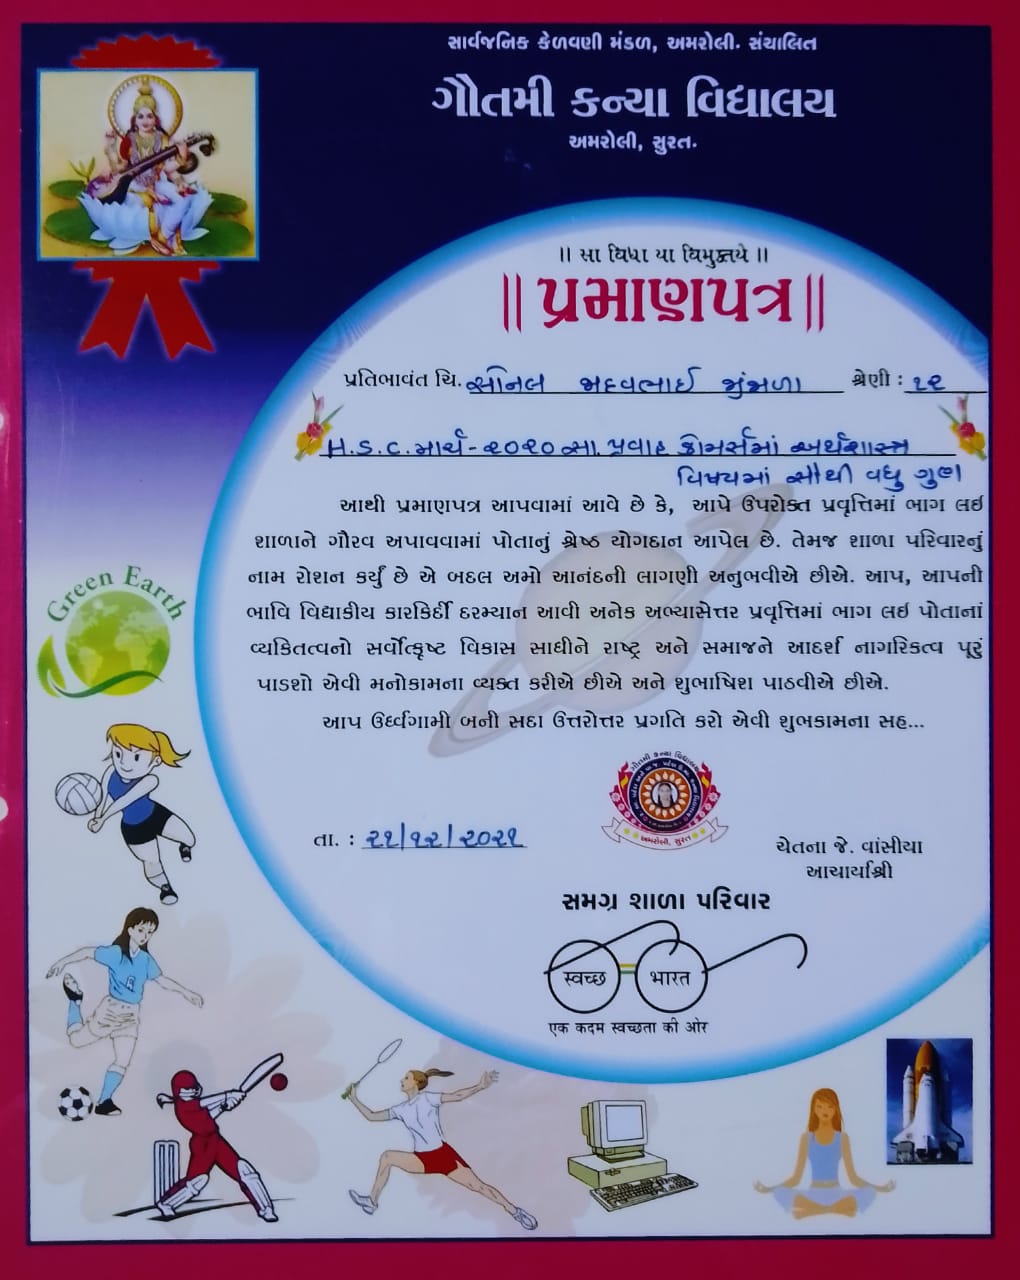 સાર્વજનિક કેળવણી મંડળ, અમરોલી. સંચાલિત
ગૌતમી કન્યા વિદ્યાલય
અમરોલી, સુરત.
|| સા વિદ્યા યા વિમુક્તયે ||
|| પ્રમાણપત્ર ||
પ્રતિભાવંત ચિ. સોનલ શ્રેણી : ૧૨
H.S.C. માર્ચ-૨૦૨૦ સા. પ્રવાહ કોમર્સમાં અર્થશાસ્ત્ર
વિષયમાં સૌથી વધુ ગુણ
આથી પ્રમાણપત્ર આપવામાં આવે છે કે, આપે ઉપરોક્ત પ્રવૃત્તિમાં ભાગ લઇ
શાળાને ગૌરવ અપાવવામાં પોતાનું શ્રેષ્ઠ યોગદાન આપેલ છે. તેમજ શાળા પરિવારનું
નામ રોશન કર્યું છે એ બદલ અમો આનંદની લાગણી અનુભવીએ છીએ. આપ, આપની
ભાવિ વિદ્યાકીય કારકિર્દી દરમ્યાન આવી અનેક અભ્યાસેત્તર પ્રવૃત્તિમાં ભાગ લઇ પોતાનાં
વ્યકિતત્વનો સર્વોત્કૃષ્ટ વિકાસ સાધીને રાષ્ટ્ર અને સમાજને આદર્શ નાગરિકત્વ પૂરું
પાડશો એવી મનોકામના વ્યક્ત કરીએ છીએ અને શુભાષિશ પાઠવીએ છીએ.
આપ ઉર્ધ્વગામી બની સદા ઉત્તરોત્તર પ્રગતિ કરો એવી શુભકામના સહ...
Green Earth
ગૌતમી કન્યા વિદ્યાલય
અમરોલી, સુરત
તા. : ૨૧/૧૨/૨૦૨૧
ચેતના જે. વાંસીયા
આચાર્યાશ્રી
સમગ્ર શાળા પરિવાર
स्वच्छ भारत
एक कदम स्वच्छता की ओर